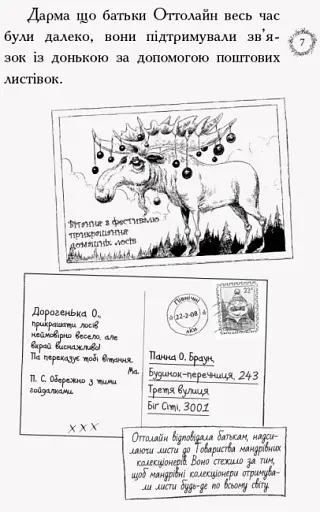 Дарма що батьки Оттолайн весь час
були далеко, вони підтримували зв'я-
зок із донькою за допомогою поштових
листівок.
7
Вітання з фестивалю
прикрашання
домашніх лосів
Дорогенька О.,
прикрашати лосів
неймовірно весело, але
вкрай виснажливо!
Па переказує тобі вітання.
Ма.
П. С. Обережно з тими
гойдалками.
X X X
Північні
22-2-08
22¢
Панна О. Браун,
Будинок-перечниця, 243
Третя вулиця
Біґ Сіті, 3001
Оттолайн відповідала батькам, надси-
лаючи листи до Товариства мандрівних
колекціонерів. Воно стежило за тим,
щоб мандрівні колекціонери отримува-
ли листи будь-де по всьому світу.